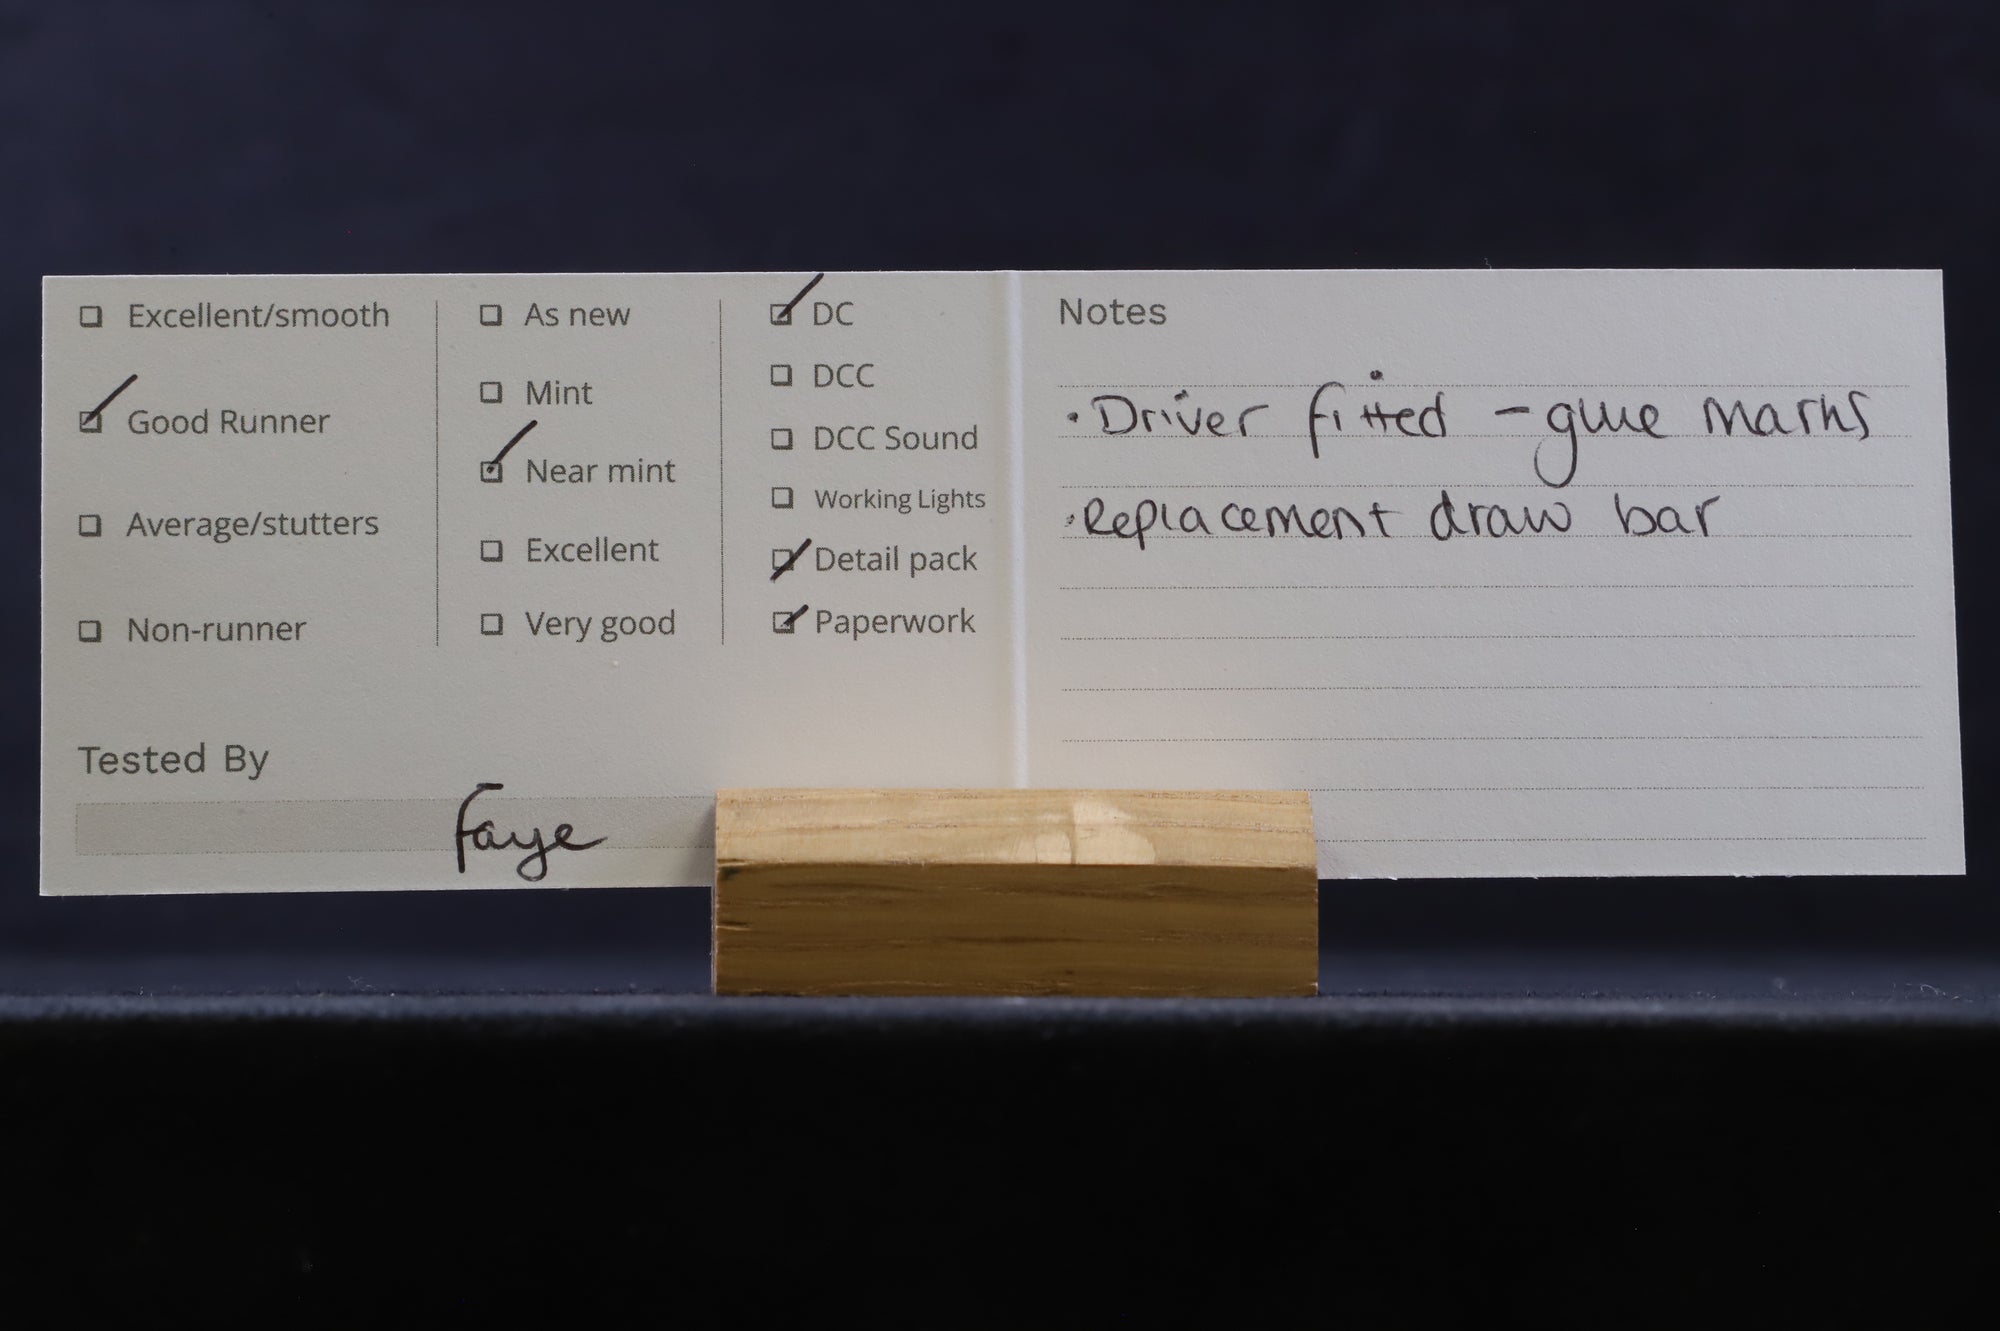 Excellent/smooth
Good Runner
Average/stutters
Non-runner
As new
Mint
Near mint
Excellent
Very good
DC
DCC
DCC Sound
Working Lights
Detail pack
Paperwork
Tested By
Faye
Notes
• Driver fitted - glue marks
• Replacement draw bar